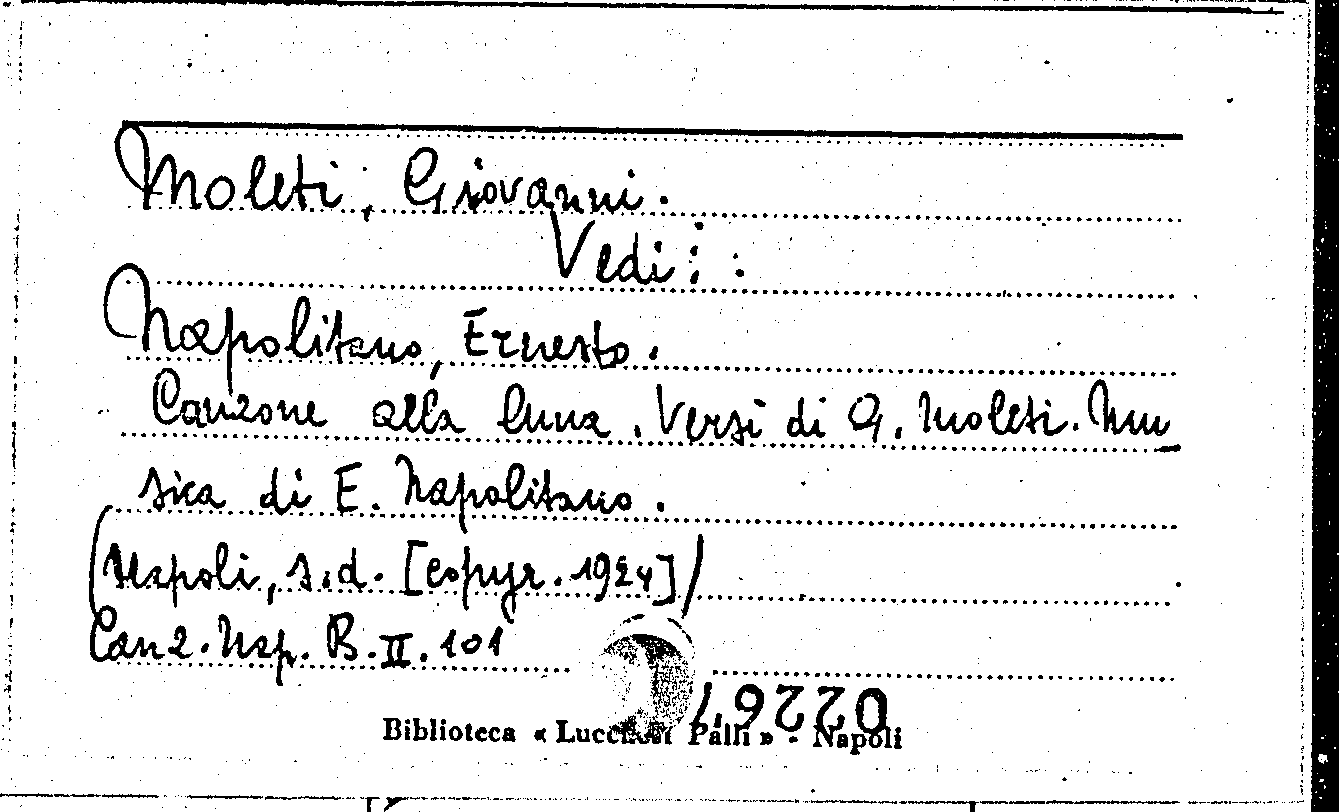 Moleti, Giovanni.
Vedi:
Napolitano, Ernesto.
Canzone alla luna. Versi di G. Moleti. Mu
sica di E. Napolitano.
(Napoli, s.d. [copyr. 1924])
Canz. Nap. B. II. 101
022267
Biblioteca « Lucchesi Palli » - Napoli